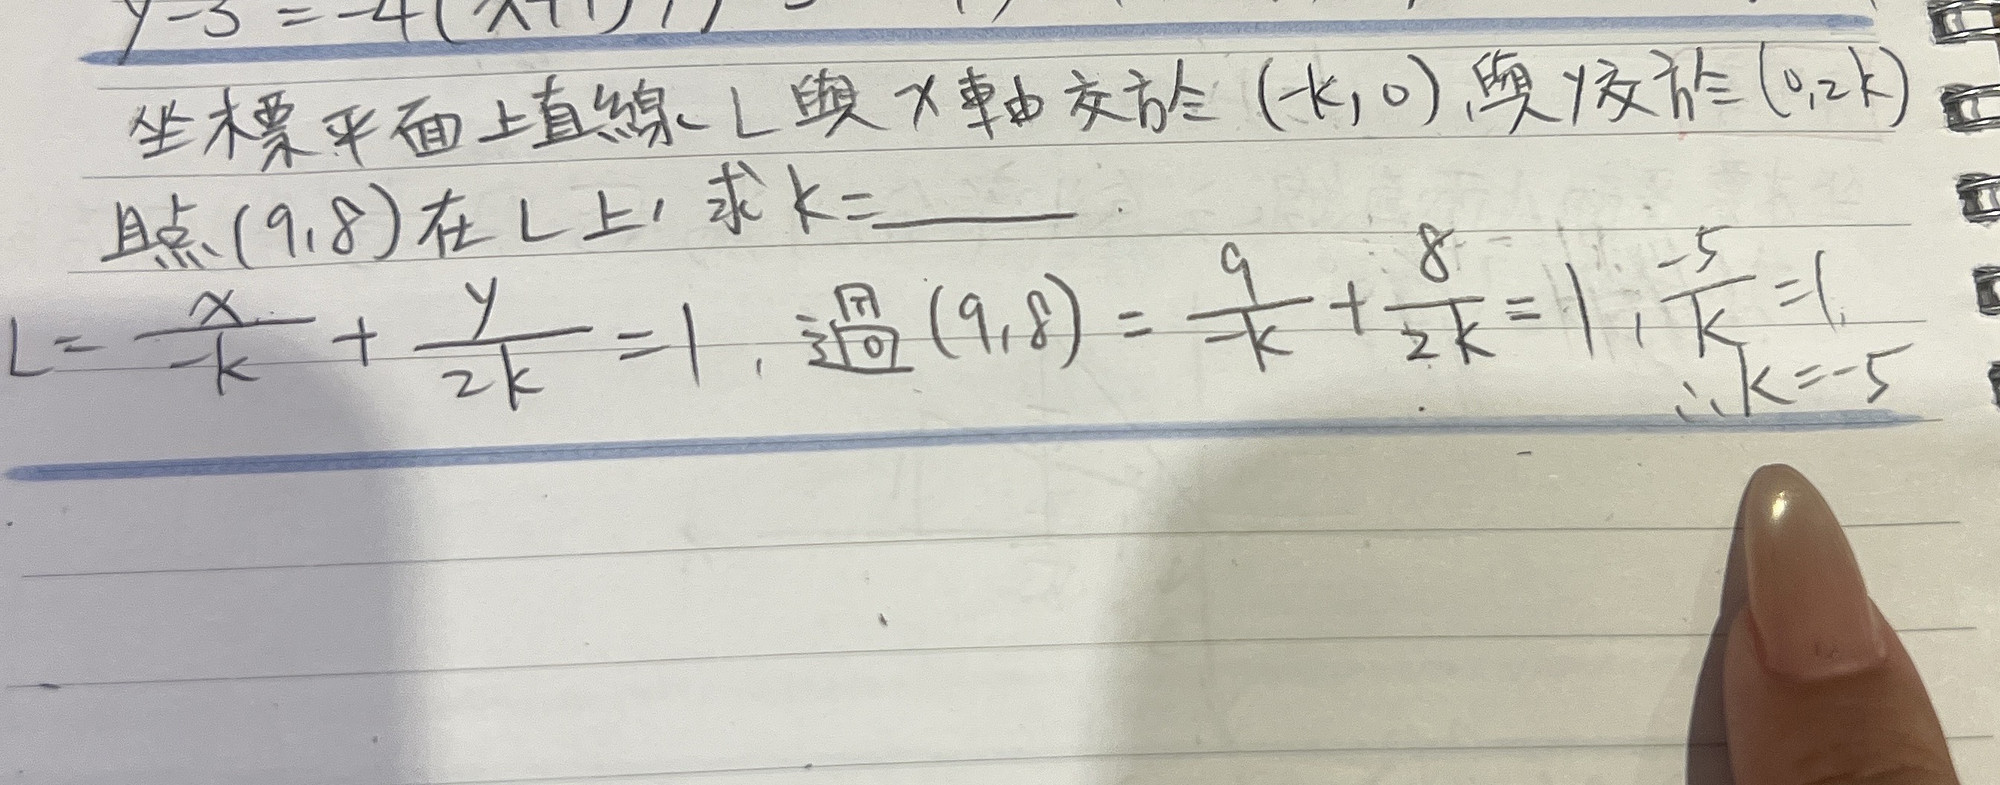 y-3=-4(x+1)
坐標平面上直線L與x軸交於(-k,0),與y交於(0,2k)
且点(9,8)在L上,求k=______.
L= x/-k + y/2k =1,過(9,8)= 9/-k + 8/2k =1, -5/k =1,
∴k=-5